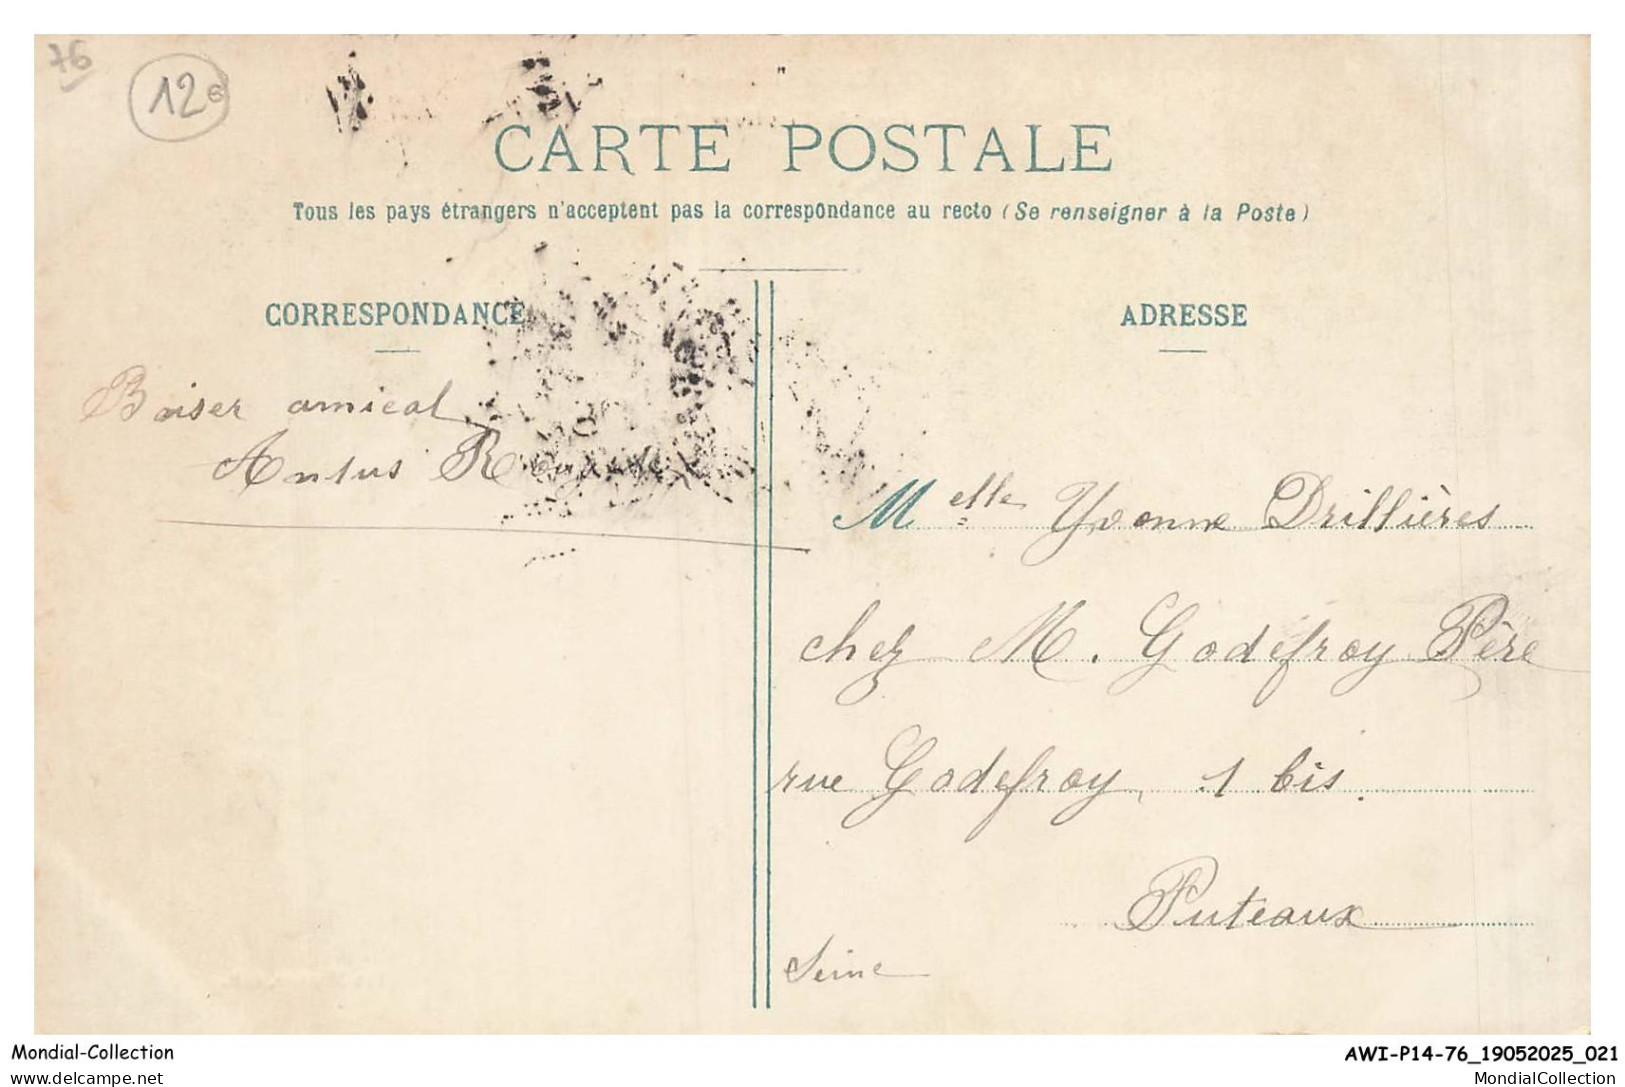 76
12€
CARTE POSTALE
Tous les pays étrangers n'acceptent pas la correspondance au recto (Se renseigner à la Poste)
CORRESPONDANCE
ADRESSE
Baiser amical
Melle Yvonne Drillières
chez M. Godefroy Père
rue Godefroy, 1 bis.
Puteaux
Seine
Mondial-Collection
AWI-P14-76_19052025_021
delcampe.net
MondialCollection